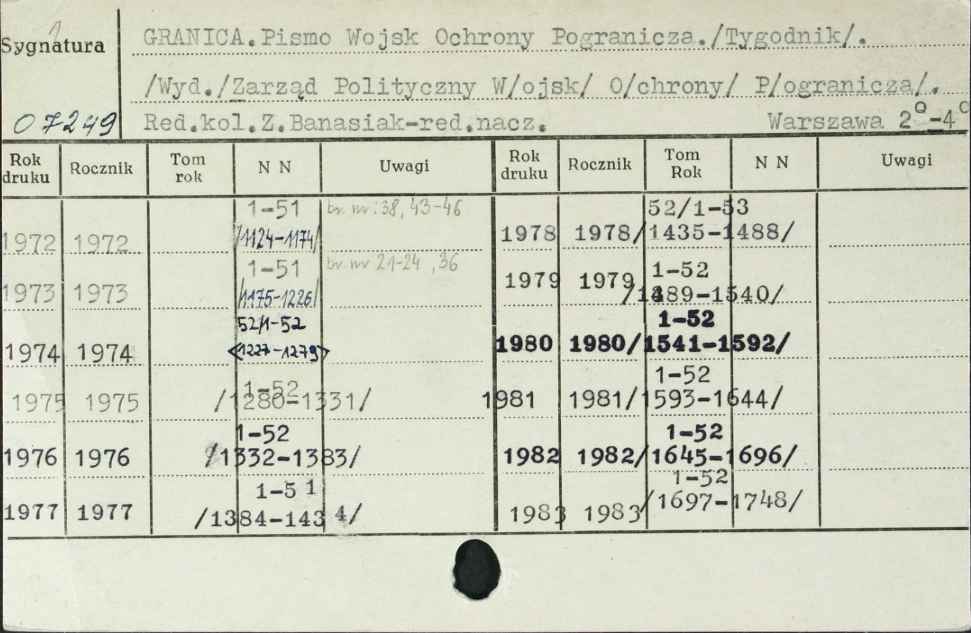 Sygnatura
GRANICA.Pismo Wojsk Ochrony Pogranicza./Tygodnik/.
/Wyd./Zarząd Polityczny W/ojsk/ O/chrony/ P/ogranicza/.
07249 Red.kol.Z.Banasiak-red.nacz. Warszawa 2°-4°
Rok druku Rocznik Tom rok N N Uwagi Rok druku Rocznik Tom Rok N N Uwagi
1-51 br. nr: 38, 43-46
1972 1972 /1124-1174/
1-51 br. nr 21-24, 36
1973 1973 /1175-1226/
52/1-52
1974 1974 <1227-1279>
1-52
1975 1975 /1280-1331/
1-52
1976 1976 /1332-1383/
1-51
1977 1977 /1384-1434/
52/1-53
1978 1978 /1435-1488/
1-52
1979 1979 /1489-1540/
1-52
1980 1980 /1541-1592/
1-52
1981 1981 /1593-1644/
1-52
1982 1982 /1645-1696/
1-52
1983 1983 /1697-1748/